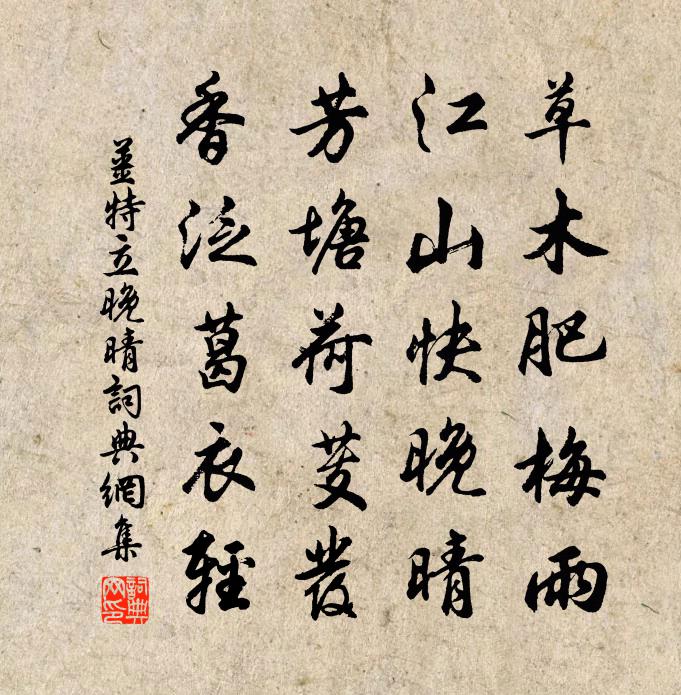 草木肥梅雨
江山快晚晴
芳塘荷芰發
香泛葛衣輕
姜特立晚晴詞典網集
詞典
网印